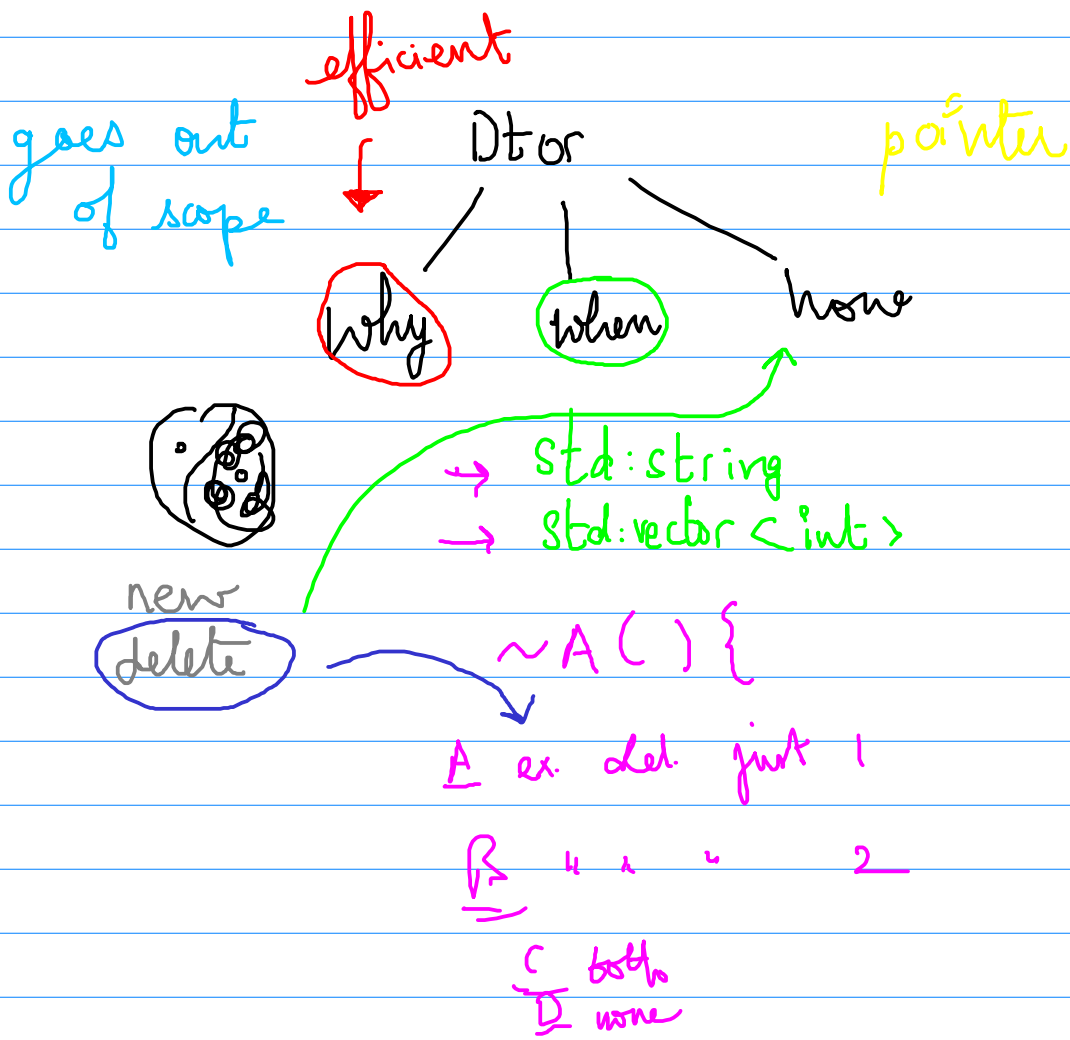 efficient
goes out
of scope
Dtor
pointer
why
when
none
Std:string
Std:vector<int>
new
delete
~A(){
A ex. del. just 1
B " " " 2
C both
D none